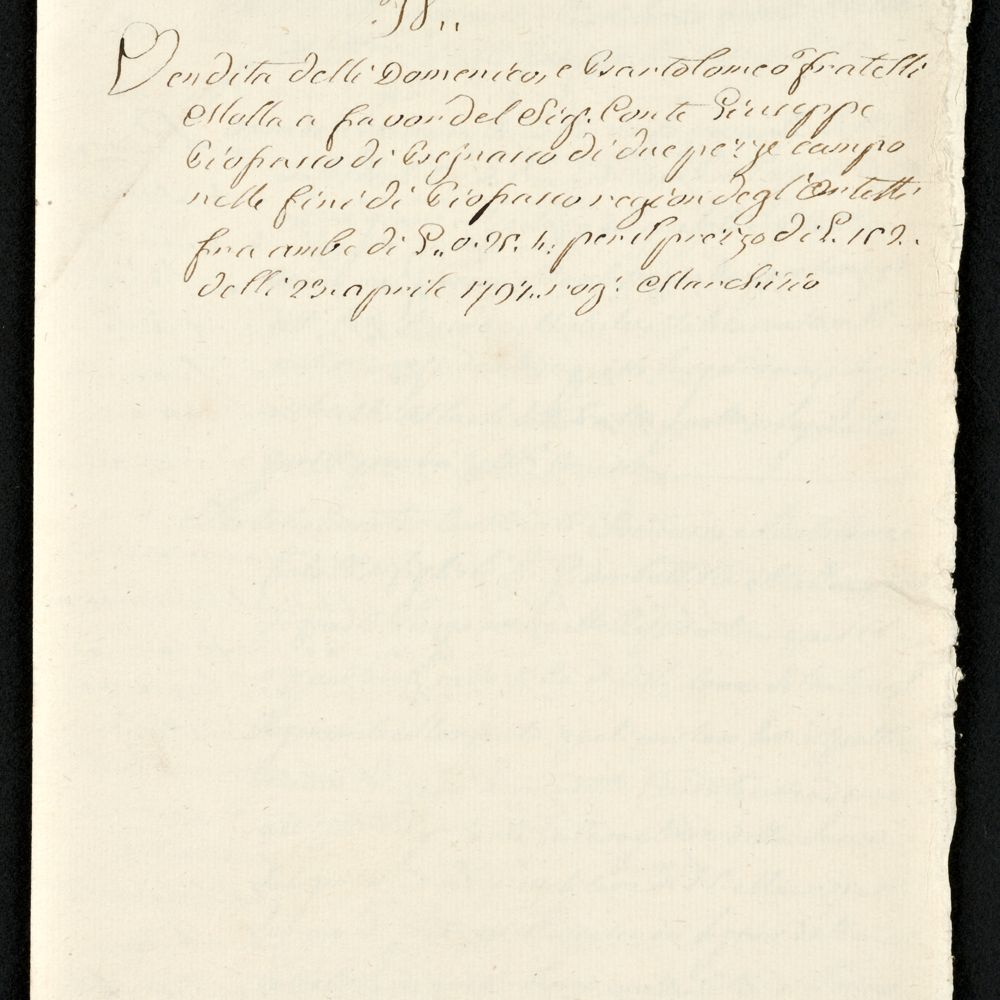 Vendita delli Domenico, e Bartolomeo fratelli
Molla a favor del Sig. Conte Giuseppe
Ciofrasco di di due pezze campo
nelle fini di Ciofrasco region degl'
fra ambe di per il prezzo di L.
delli 23. aprile rog. Marchisio